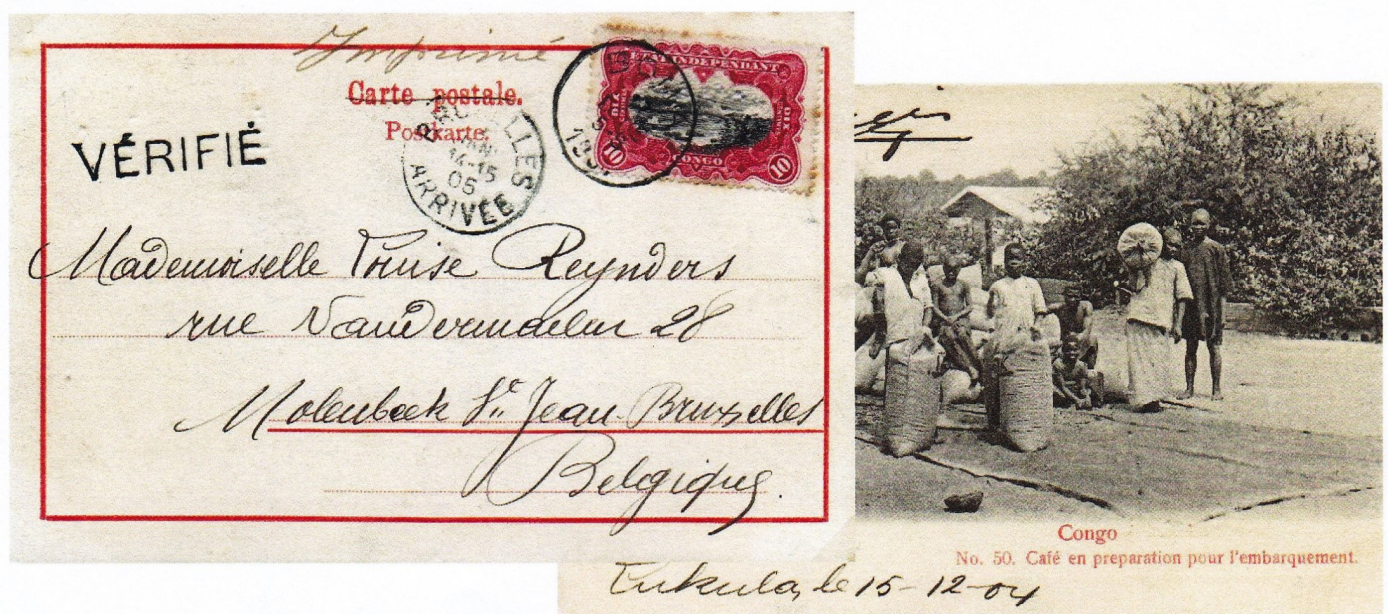 Imprimé
Carte postale.
Postkarte.
VÉRIFIÉ
14-15
05
ARRIVÉE
ETAT INDEPENDANT
DU
DIX
CONGO
10
10
Mademoiselle Louise Reynders
rue Vandermaelen 28
Molenbeek St. Jean-Bruxelles
Belgique.
Congo
No. 50. Café en preparation pour l'embarquement.
Lukula, le 15-12-04